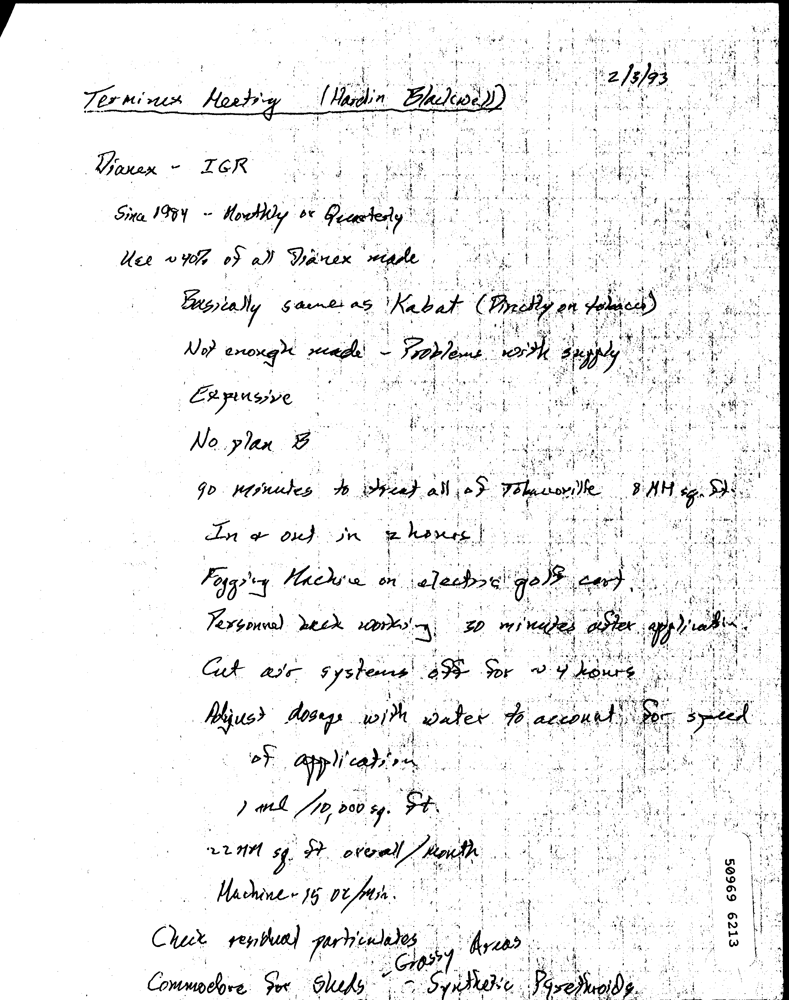 2/3/93
Terminex Meeting (Hardin Blackwell)
Dianex - IGR
Since 1984 - Monthly or Quarterly
Use ~40% of all Dianex made
Basically same as Kabat (Directly on tobacco)
Not enough made - Problems with supply
Expensive
No plan B
90 minutes to treat all of Tobaccoville 8 MM sq. ft.
In & out in 2 hours
Fogging Machine on electric golf cart.
Personnel back working 30 minutes after application.
Cut air systems off for ~ 4 hours
Adjust dosage with water to account for speed
of application
1 ml /10,000 sq. ft.
22 MM sq. ft overall/month
Machine - 15 oz/min.
Check residual particulates
Commodore for Sheds - Grassy Areas
- Synthetic Pyrethroids
50969 6213